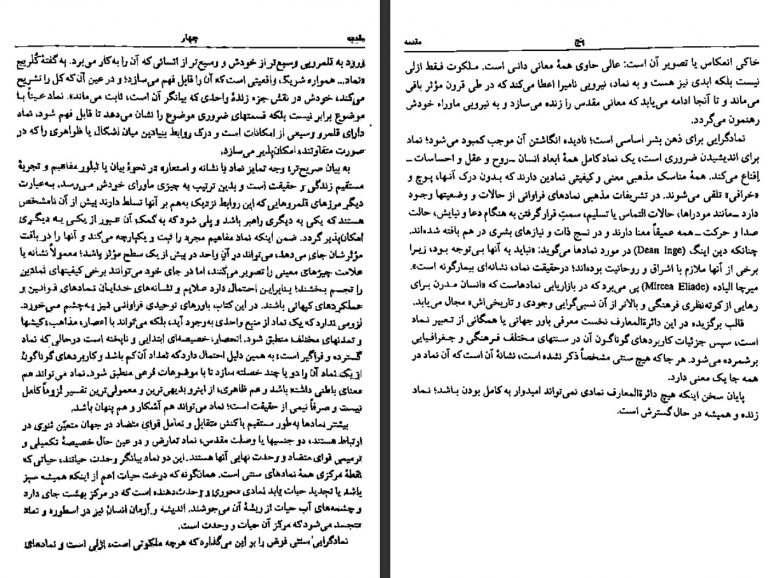 مقدمه چهار
فرود به قلمرویی وسیع‌تر از خودش و وسیع‌تر از انسانی که آن را به کار می‌برد. به گفتهٔ کُلریج
«نماد... همواره شریک واقعیتی است که آن را قابل فهم می‌سازد؛ و در عین آن که کل را تشریح
می‌کند، خودش در نقش جزء زندهٔ واحدی که بیانگر آن است، ثابت می‌ماند». نماد عیناً با
موضوع برابر نیست بلکه قسمتهای ضروری موضوع را نشان می‌دهد تا قابل فهم شود. نماد
دارای قلمرو وسیعی از امکانات است و درک روابط بنیادین میان اشکال یا ظواهری را که در
صورت متفاوتند، امکان‌پذیر می‌سازد.
به بیان صریح‌تر، وجه تمایز نماد با نشانه و استعاره در نحوهٔ بیان یا تبلور مفاهیم و تجربهٔ
مستقیم زندگی و حقیقت است و بدین ترتیب به چیزی ماورای خودش می‌رسد. به عبارت
دیگر مرزهای قلمروهایی که این روابط نزدیک به هم بر آنها تسلط دارند بیش از آن نامشخص
هستند که یکی به دیگری راهبر باشد و پلی شود که به کمک آن عبور از یکی به دیگری
امکان‌پذیر گردد. ضمن اینکه نماد مفاهیم مجرد را ثبت و یکپارچه می‌کند و آنها را در بافت
مؤثرشان جای می‌دهد، می‌تواند در آنِ واحد در بیش از یک سطح مؤثر باشد؛ معمولاً نشانه یا
علامت چیزهای معینی را تصویر می‌کنند، اما در جای خود می‌توانند برخی کیفیتهای نمادین
را تجسم بخشند؛ بنابراین احتمال دارد علایم و نشانه‌های خدایان نمادهای قوانین و
عملکردهای کیهانی باشند. در این کتاب باورهای توحیدی فراوانی نیز به چشم می‌خورد.
لزومی ندارد که یک نماد از منبع واحدی به وجود آید، بلکه می‌تواند با اعصار، مذاهب، کیشها
و تمدنهای مختلف منطبق شود. انحصار، خصیصه‌ای ابتدایی و ناپخته است درحالی که نماد
گسترده و فراگیر است؛ به همین دلیل احتمال دارد که تعداد آن کم باشد و کاربردهای گوناگون
از یک نماد آن را دو یا چند خصلته سازد تا با موضوعات فرعی منطبق شود. نماد می‌تواند هم
معنای باطنی داشته باشد و هم ظاهری، از اینرو بدیهی‌ترین و معمولی‌ترین تفسیر لزوماً کامل
نیست و صرفاً نیمی از حقیقت است؛ نماد می‌تواند هم آشکار و هم پنهان باشد.
بیشتر نمادها به طور مستقیم با کنش متقابل و تعامل قوای متضاد در جهان متعیّنِ ثنوی در
ارتباط هستند، دو جنسیها یا وصلت مقدس، نماد تعارض و در عین حال خصیصهٔ تکمیلی و
ترمیمی قوای متضاد و وحدت نهایی آنها هستند. این دو نماد بیانگر وحدت حیاتند، حیاتی که
نقطهٔ مرکزی همهٔ نمادهای سنتی است. همانگونه که درخت حیات اعم از اینکه همیشه سبز
باشد یا تجدید حیات یابد نمادی محوری و وحدت‌دهنده است که در مرکز بهشت جای دارد
و چشمه‌های آب حیات از ریشهٔ آن می‌جوشند. اندیشه و آرمان انسان نیز در اسطوره و نماد
متجسد می‌شود که مرکز آن حیات و وحدت است.
نمادگرایی سنتی فرض را بر این می‌گذارد که هرچه ملکوتی است، ازلی است و نمادهای
پنج مقدمه
خاکی انعکاس یا تصویر آن است: عالی حاوی همهٔ معانی دانی است. ملکوت فقط ازلی
نیست بلکه ابدی نیز هست و به نماد، نیرویی نامیرا اعطا می‌کند که در طی قرون مؤثر باقی
می‌ماند و تا آنجا ادامه می‌یابد که معانی مقدس را زنده می‌سازد و به نیرویی ماوراء خودش
رهنمون می‌گردد.
نمادگرایی برای ذهن بشر اساسی است؛ نادیده انگاشتن آن موجب کمبود می‌شود؛ نماد
برای اندیشیدن ضروری است، یک نماد کامل همهٔ ابعاد انسان ـ روح و عقل و احساسات ـ
إقناع می‌کند. همهٔ مناسک مذهبی معنی و کیفیتی نمادین دارند که بدون درک آنها، پوچ و
«خرافی» تلقی می‌شوند. در تشریفات مذهبی نمادهای فراوانی از حالات و وضعیتها وجود
دارد ـ مانند مودراها، حالات التماس یا تسلیم، سمت قرار گرفتن به هنگام دعا و نیایش، حالت
صدا و حرکت ـ همه عمیقاً معنا دارند و در نسج ذات و نیازهای بشری در هم بافته شده‌اند.
چنانکه دین اینگ (Dean Inge) در مورد نمادها می‌گوید: «نباید به آنها بی‌توجه بود، زیرا
برخی از آنها ملازم با اشراق و روحانیت بوده‌اند؛ درحقیقت نماد، نشانه‌ای بیمارگونه است».
میرچا الیاده (Mircea Eliade) پی می‌برد که در بازاریابی نمادهاست که «انسان مدرن برای
رهایی از کوته‌نظری فرهنگی و بالاتر از آن نسبی‌گرایی وجودی و تاریخی‌اش» مجال می‌یابد.
قالب برگزیده در این دائرةالمعارف نخست معرفی باور جهانی یا همگانی از تعبیر نماد
است، سپس جزئیات کاربردهای گوناگون آن در سنتهای مختلف فرهنگی و جغرافیایی
برشمرده می‌شود. هر جا که هیچ سنتی مشخصاً ذکر نشده است، نشانهٔ آن است که آن نماد در
همه جا یک معنی دارد.
پایان سخن اینکه هیچ دائرةالمعارف نمادی نمی‌تواند امیدوار به کامل بودن باشد؛ نماد
زنده و همیشه در حال گسترش است.